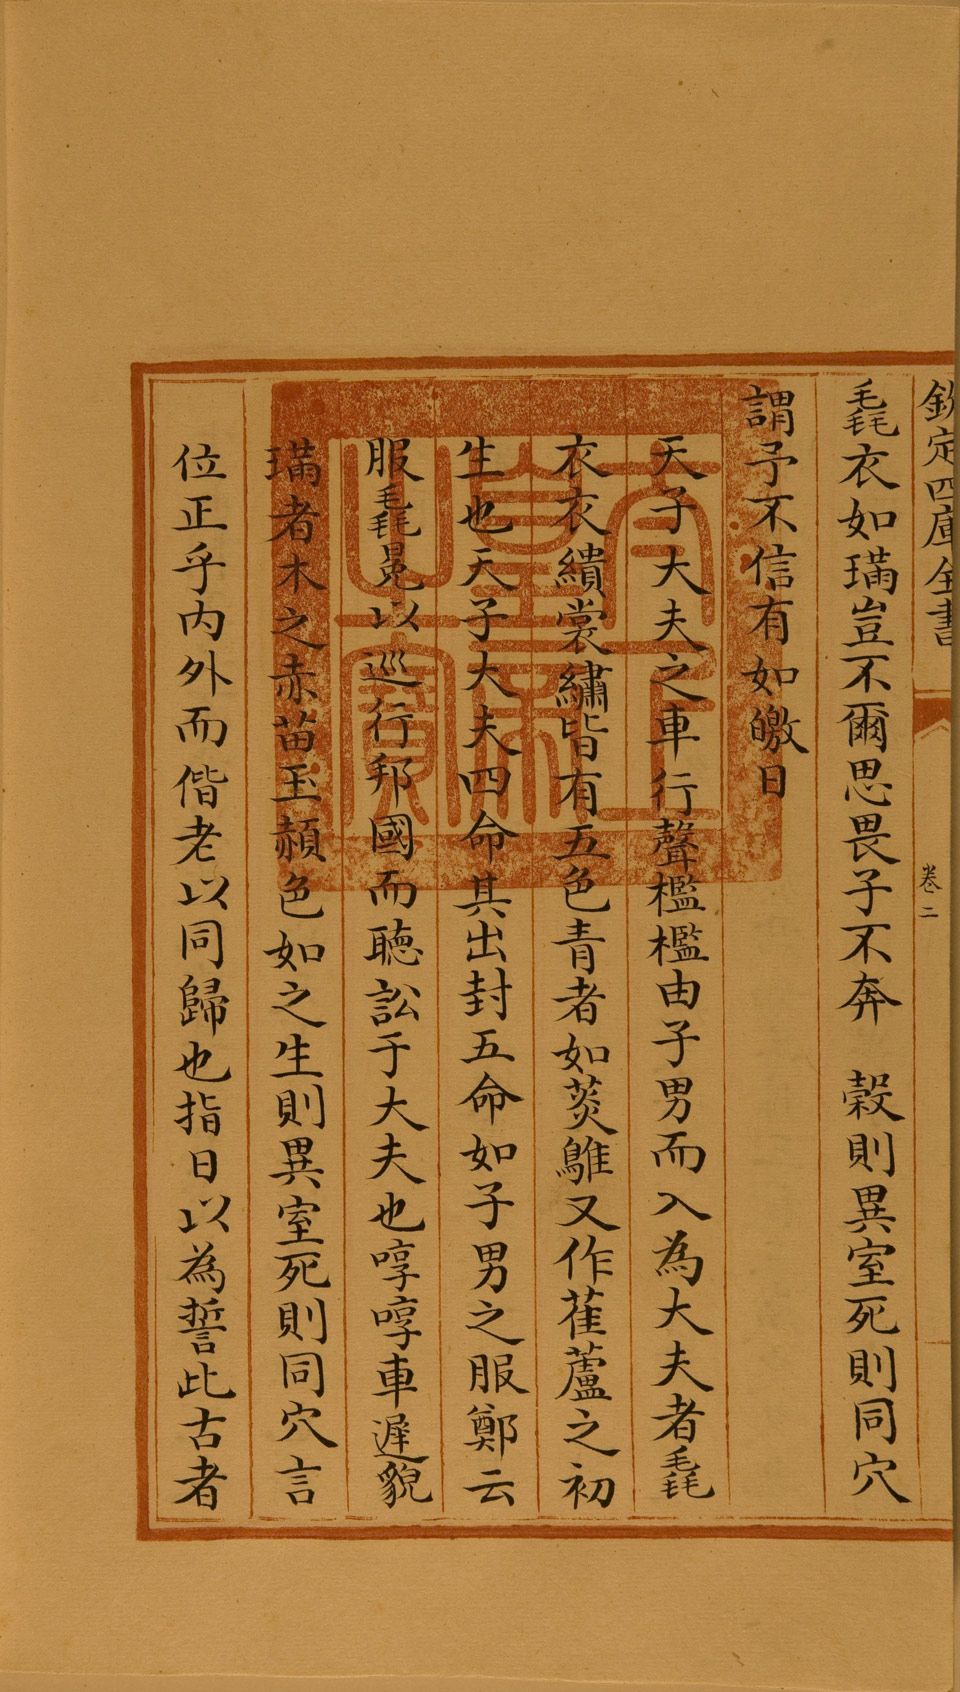 欽定四庫全書
卷二
毳衣如璊豈不爾思畏子不奔　穀則異室死則同穴
謂予不信有如皦日
天子大夫之車行聲檻檻由子男而入為大夫者毳
衣衣繢裳繡皆有五色青者如菼鵻又作萑蘆之初
生也天子大夫四命其出封五命如子男之服鄭云
服毳冕以巡行邦國而聽訟于大夫也啍啍車遲貌
璊者木之赤苗玉赬色如之生則異室死則同穴言
位正乎內外而偕老以同歸也指日以為誓此古者